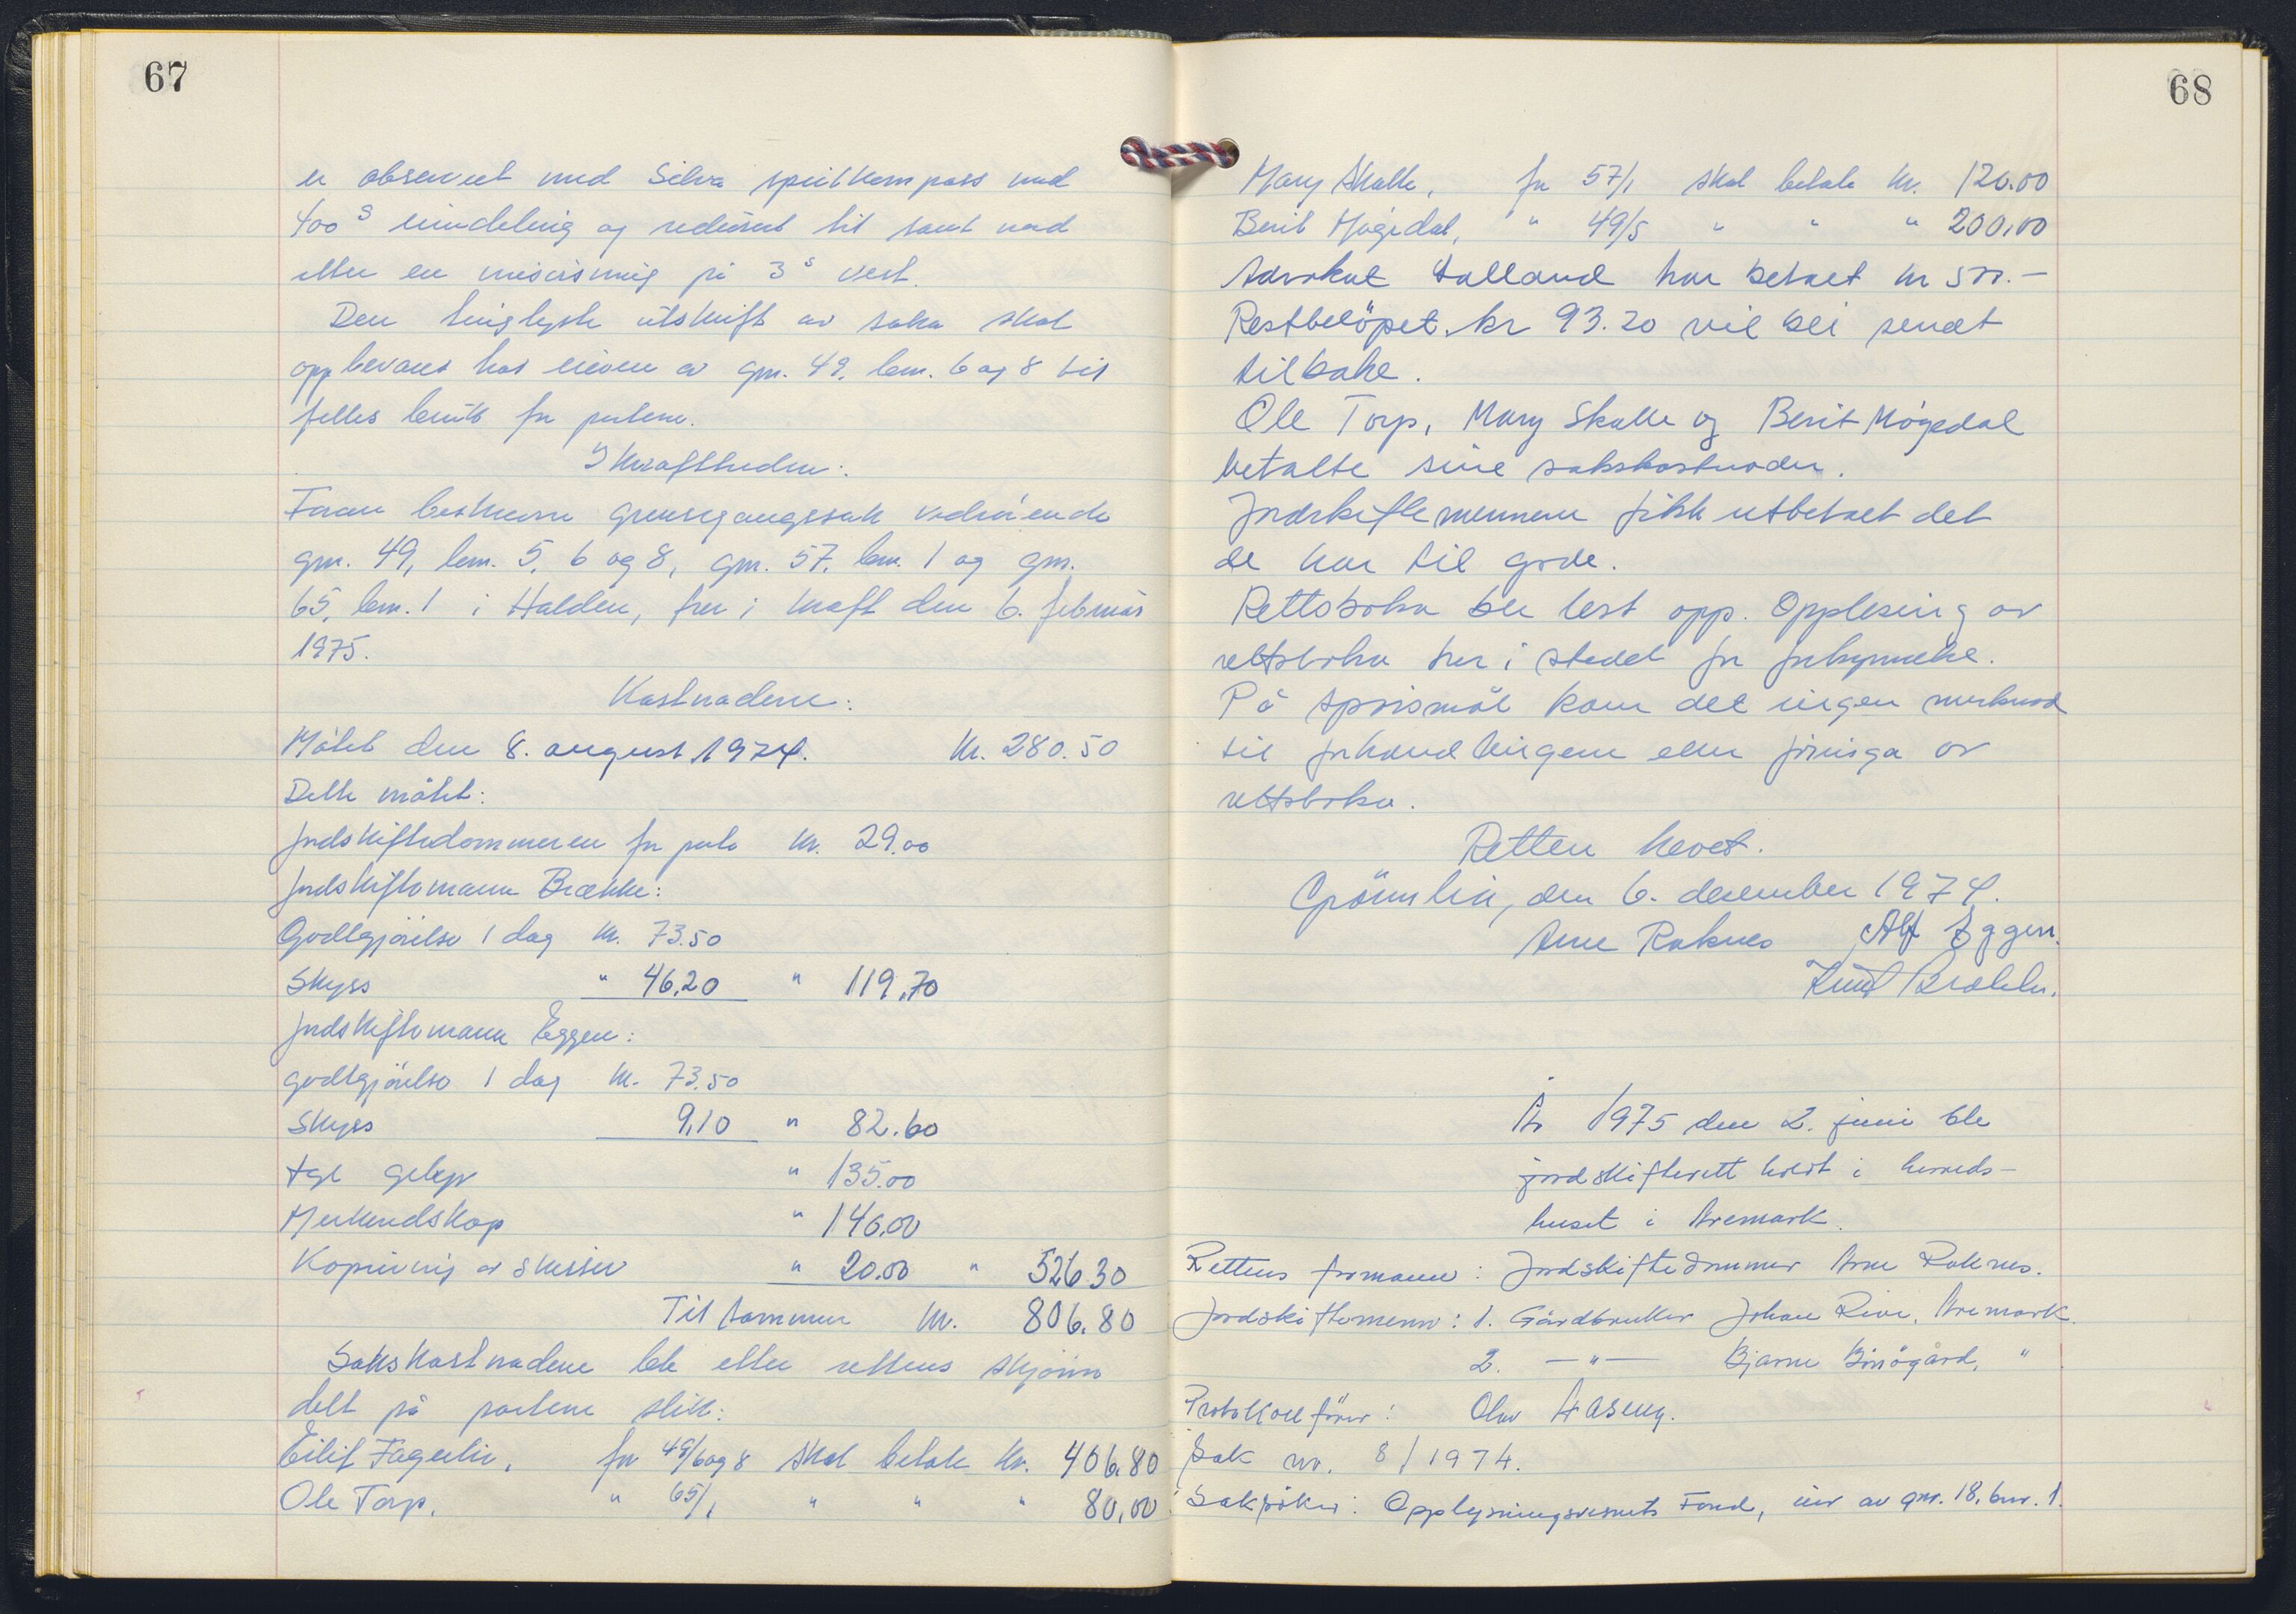 67
er observert med Silva speilkompass med
400 g inndeling og redusert til sant nord
etter en misvisning på 3 g vest.
Den tinglyste utskrift av saka skal
oppbevares hos eieren av gnr. 49, bnr. 6 og 8 til
felles bruk for partene.
Ikrafttreden:
Foran beskrevne grensegangssak vedrørende
gnr. 49, bnr. 5, 6 og 8, gnr. 57, bnr. 1 og gnr.
65, bnr. 1 i Halden, trer i kraft den 6. februar
1975.
Kostnadene:
Møtet den 8. august 1974. kr. 280.50
Dette møtet:
Jordskiftedommeren for porto kr. 29.00
Jordskiftemann Brække:
Godtgjörelse 1 dag kr. 73.50
Skyss " 46,20 " 119,70
Jordskiftemann Eggen:
godtgjörelse 1 dag kr. 73,50
Skyss 9,10 " 82.60
Tgl gebyr " 135.00
Merkeredskap " 140,00
Kopiering av skisser " 20.00 " 526.30
Til sammen kr. 806.80
Sakskostnadene ble etter rettens skjønn
delt på partene slik:
Eilif Fagerlie, for 49/6 og 8 skal betale kr. 406.80
Ole Torp, " 65/1 " " " 80,00
68
Mary Skolle, for 57/1 skal betale kr. 120.00
Berit Møgedal, " 49/5 " " " 200,00
Advokat Halland har betalt kr 500.-
Restbelöpet kr 93.20 vil bli sendt
tilbake.
Ole Torp, Mary Skolle og Berit Møgedal
betalte sine sakskostnader.
Jordskiftemennene fikk utbetalt det
de har til gode.
Rettsboka ble lest opp. Opplesing av
rettsboka trer i stedet for forkynnelse.
På spørsmål kom det ingen merknad
til forhandlingene eller føringa av
rettsboka.
Retten hevet.
den 6. desember 1974.
Arne Raknes Alf Eggen.
Knut Brække.
År 1975 den 2. juni ble
jordskifterett holdt i herreds-
huset i Aremark.
Rettens formann: Jordskiftedommer Arne Raknes.
Jordskiftemenn: 1. Gårdbruker Johan Rive, Aremark.
2. —"— Bjarne Bøågård, "
Protokollfører: Olav Haseng.
Sak nr. 8/1974.
Saksøker: Opplysningsvesenets Fond, eier av gnr. 18, bnr. 1.